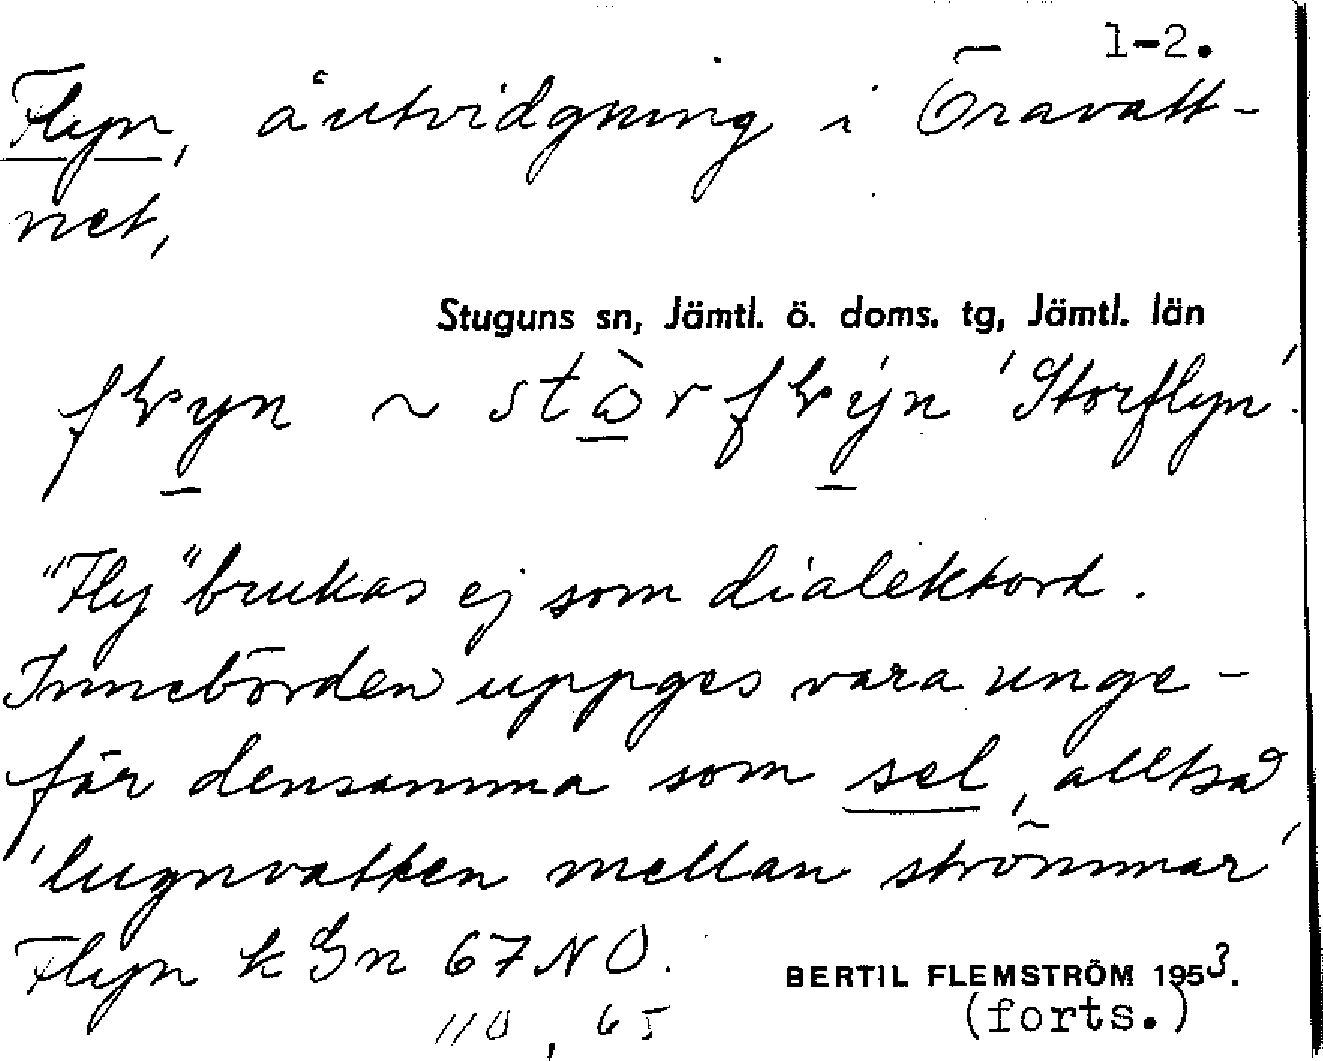 1-2.
Flyn, åutvidgning i Öravatt-
net,
Stuguns sn, Jämtl. ö. doms. tg, Jämtl. län
'Storflyn'.
"Fly" brukas ej som dialektord.
Innebörden uppges vara unge-
fär densamma som sel, alltså
'lugnvatten mellan strömmar'
Flyn k Gn 67 NO.
BERTIL FLEMSTRÖM 1953.
110, 65
(forts.)